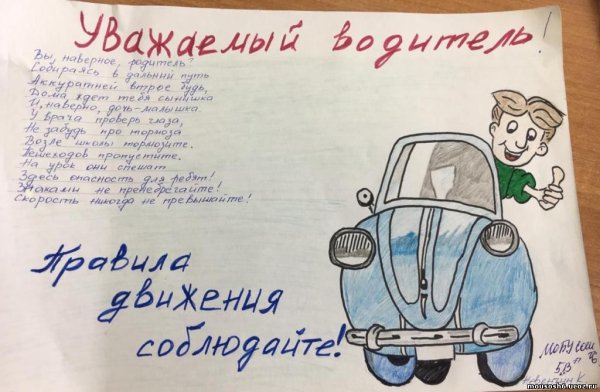 Уважаемый водитель!
Вы, наверное, родитель?
Собираясь в дальний путь
Аккуратней втрое будь,
Дома ждет тебя сынишка
И, наверно, дочь-малышка.
У врача проверь глаза,
Не забудь про тормоза
Возле школы тормозите.
Пешеходов пропустите.
На урок они спешат
Здесь опасность для ребят!
Знаками не пренебрегайте!
Скорость никогда не превышайте!
Правила
движения
соблюдайте!
МОБУ СОШ
5,В"
mousosh6.ucoz.ru